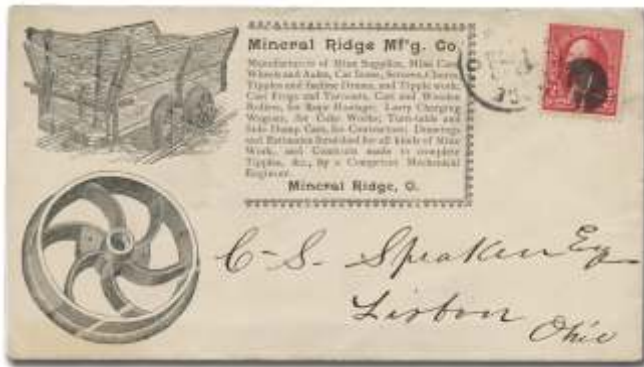 Mineral Ridge Mf'g. Co.
Manufacturers of Mine Supplies, Mine Cars,
Wheels and Axles, Car Irons, Screens, Chutes,
Tipples and Incline Drums, and Tipple work,
Cast Frogs and Turnouts, Cast and Wooden
Rollers, for Rope Haulage; Larry Charging
Wagons, for Coke Works; Turn-table and
Side Dump Cars, for Contractors; Drawings
and Estimates furnished for all kinds of Mine
Work, and Contracts made to complete
Tipples, &c., by a Competent Mechanical
Engineer.
Mineral Ridge, O.
C-S- Speaker Esq
Lisbon
Ohio